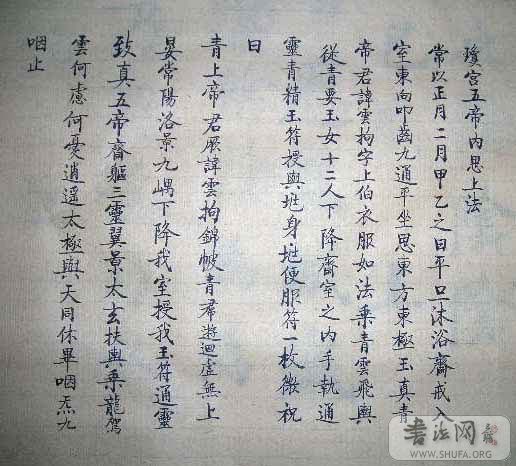 瓊宮五帝內思上法
常以正月二月甲乙之日平旦沐浴齋戒入
室東向叩齒九通平坐思東方東極玉真青
帝君諱雲拘字上伯衣服如法乘青雲飛輿
從青要玉女十二人下降齋室之內手執通
靈青精玉符授與兆身兆便服符一枚微祝
曰
青上帝君厥諱雲拘錦帔青帬遊迴虛無上
晏常陽洛景九嵎下降我室授我玉符通靈
致真五帝齋軀三靈翼景太玄扶輿乘龍駕
雲何慮何憂逍遥太極與天同休畢咽炁九
咽止
书法网
WWW.SHUFA.ORG